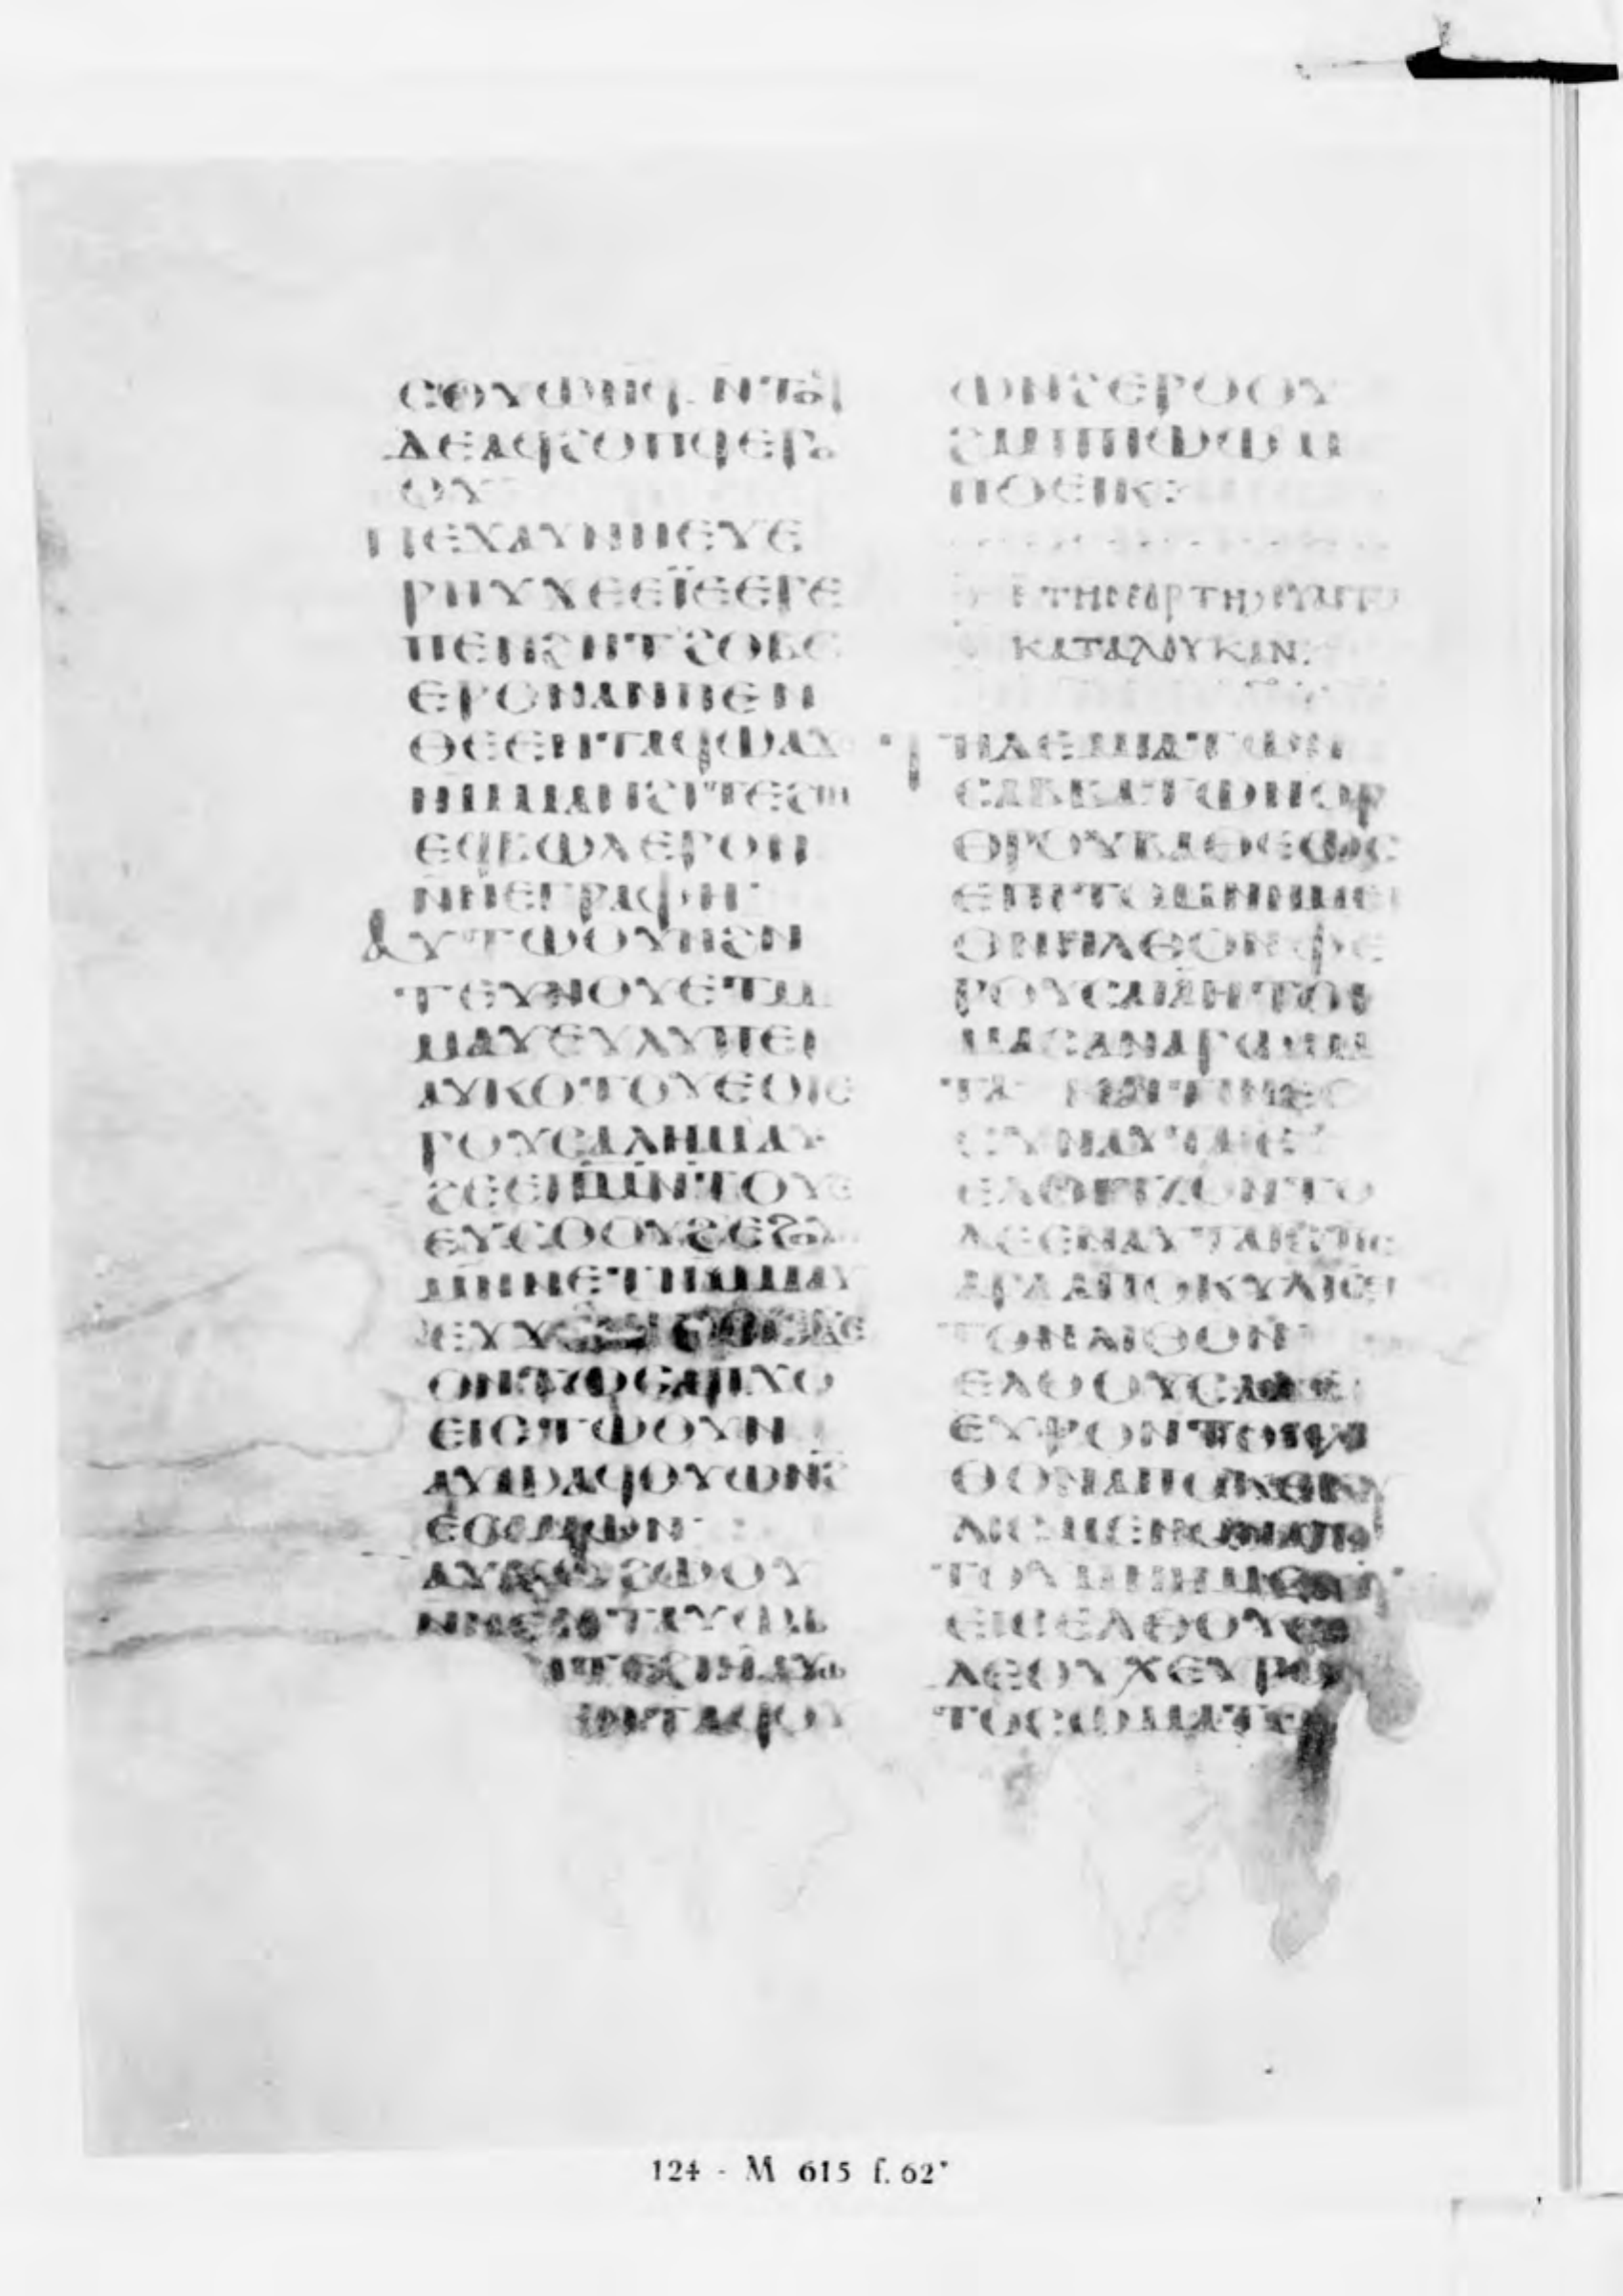 ⲥⲟⲩⲱⲛϥ· ⲛⲧⲟϥ
ⲇⲉⲁϥϩⲟⲡϥⲉⲣⲟ
ⲟⲩ
ⲡⲉϫⲁⲩⲛⲛⲉⲩⲉ
ⲣⲏⲩϫⲉⲉⲓ̈ⲉⲉⲣⲉ
ⲡⲉⲛϩⲏⲧϩⲟⲃⲥ
ⲉⲣⲟⲛⲁⲛⲡⲉⲛ
ⲑⲉⲉⲛⲧⲁϥϣⲁϫ
ⲛⲙⲙⲁⲛϩⲓⲧⲉϩⲓⲏ
ⲉϥⲃⲱⲗⲉⲣⲟⲛ
ⲛⲛⲉⲅⲣⲁⲫⲏ·
ⲁⲩⲧⲱⲟⲩⲛϩⲛ
ⲧⲉⲩⲛⲟⲩⲉⲧⲙ
ⲙⲁⲩⲉⲩⲗⲩⲡⲉⲓ
ⲁⲩⲕⲟⲧⲟⲩⲉⲑⲓⲉ
ⲣⲟⲩⲥⲁⲗⲏⲙⲁⲩ
ϩⲉⲉⲡⲙⲛⲧⲟⲩⲉ
ⲉⲩⲥⲟⲟⲩϩⲉϩⲟⲩ
ⲙⲛⲛⲉⲧⲛⲙⲙⲁⲩ
ⲉⲩϫⲱ
ⲟⲛⲧⲱⲥⲁⲡϫⲟ
ⲉⲓⲥⲧⲱⲟⲩⲛ
ⲁⲩⲱⲁϥⲟⲩⲱⲛϩ
ⲉⲥⲓⲙⲱⲛ·
ⲁⲩϫⲱϩⲱⲟⲩ
ⲛⲛⲉⲛⲧⲁⲩϣⲱ
ϩⲓⲧⲉϩⲓⲏⲁⲩⲱ
ⲛⲧⲁϥⲟⲩ
ⲱⲛϩⲉⲣⲟⲟⲩ
ϩⲙⲡⲡⲱϣⲙ
ⲡⲟⲉⲓⲕ:
ⲧⲏⲥⲉⲟⲣⲧⲏ ⲉⲩⲁⲅⲅ
ⲕⲁⲧⲁⲗⲟⲩⲕⲁⲛ:
ⲧⲏⲇⲉⲙⲓⲁⲧⲱⲛ
ⲥⲁⲃⲃⲁⲧⲱⲛⲟⲣ
ⲑⲣⲟⲩⲃⲁⲑⲉⲱⲥ
ⲉⲡⲓⲧⲟⲙⲛⲏⲙⲉⲓ
ⲟⲛⲏⲗⲑⲟⲛⲫⲉ
ⲣⲟⲩⲥⲁⲓⲁⲏⲧⲟⲓ
ⲙⲁⲥⲁⲛⲁⲣⲱⲙⲁ
ⲧⲁ ⲕⲁⲓⲧⲓⲛⲉⲥ
ⲥⲩⲛⲁⲩⲧⲁⲓⲥ·
ⲉⲗⲟⲅⲓⲍⲟⲛⲧⲟ
ⲇⲉⲉⲛⲁⲩⲧⲁⲓⲥⲧⲓⲥ
ⲁⲣⲁⲁⲡⲟⲕⲩⲗⲓⲥⲉⲓ
ⲧⲟⲛⲗⲓⲑⲟⲛ
ⲉⲗⲑⲟⲩⲥⲁⲓⲇⲉ
ⲉⲩⲣⲟⲛⲧⲟⲛⲗⲓ
ⲑⲟⲛⲁⲡⲟⲕⲉⲕⲩ
ⲗⲓⲥⲙⲉⲛⲟⲛⲁⲡⲟ
ⲧⲟⲩⲙⲛⲏⲙⲉⲓⲟⲩ
ⲉⲓⲥⲉⲗⲑⲟⲩⲥⲁⲓ
ⲇⲉⲟⲩⲭⲉⲩⲣⲟⲛ
ⲧⲟⲥⲱⲙⲁⲧⲟⲩ